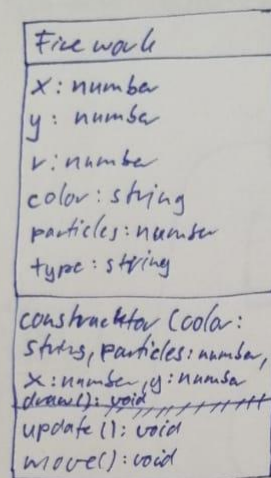 Firework
x: number
y: number
r: number
color: string
particles: number
type: string
constructor (color:
string, particles: number,
x: number, y: number
draw(): void
update(): void
move(): void